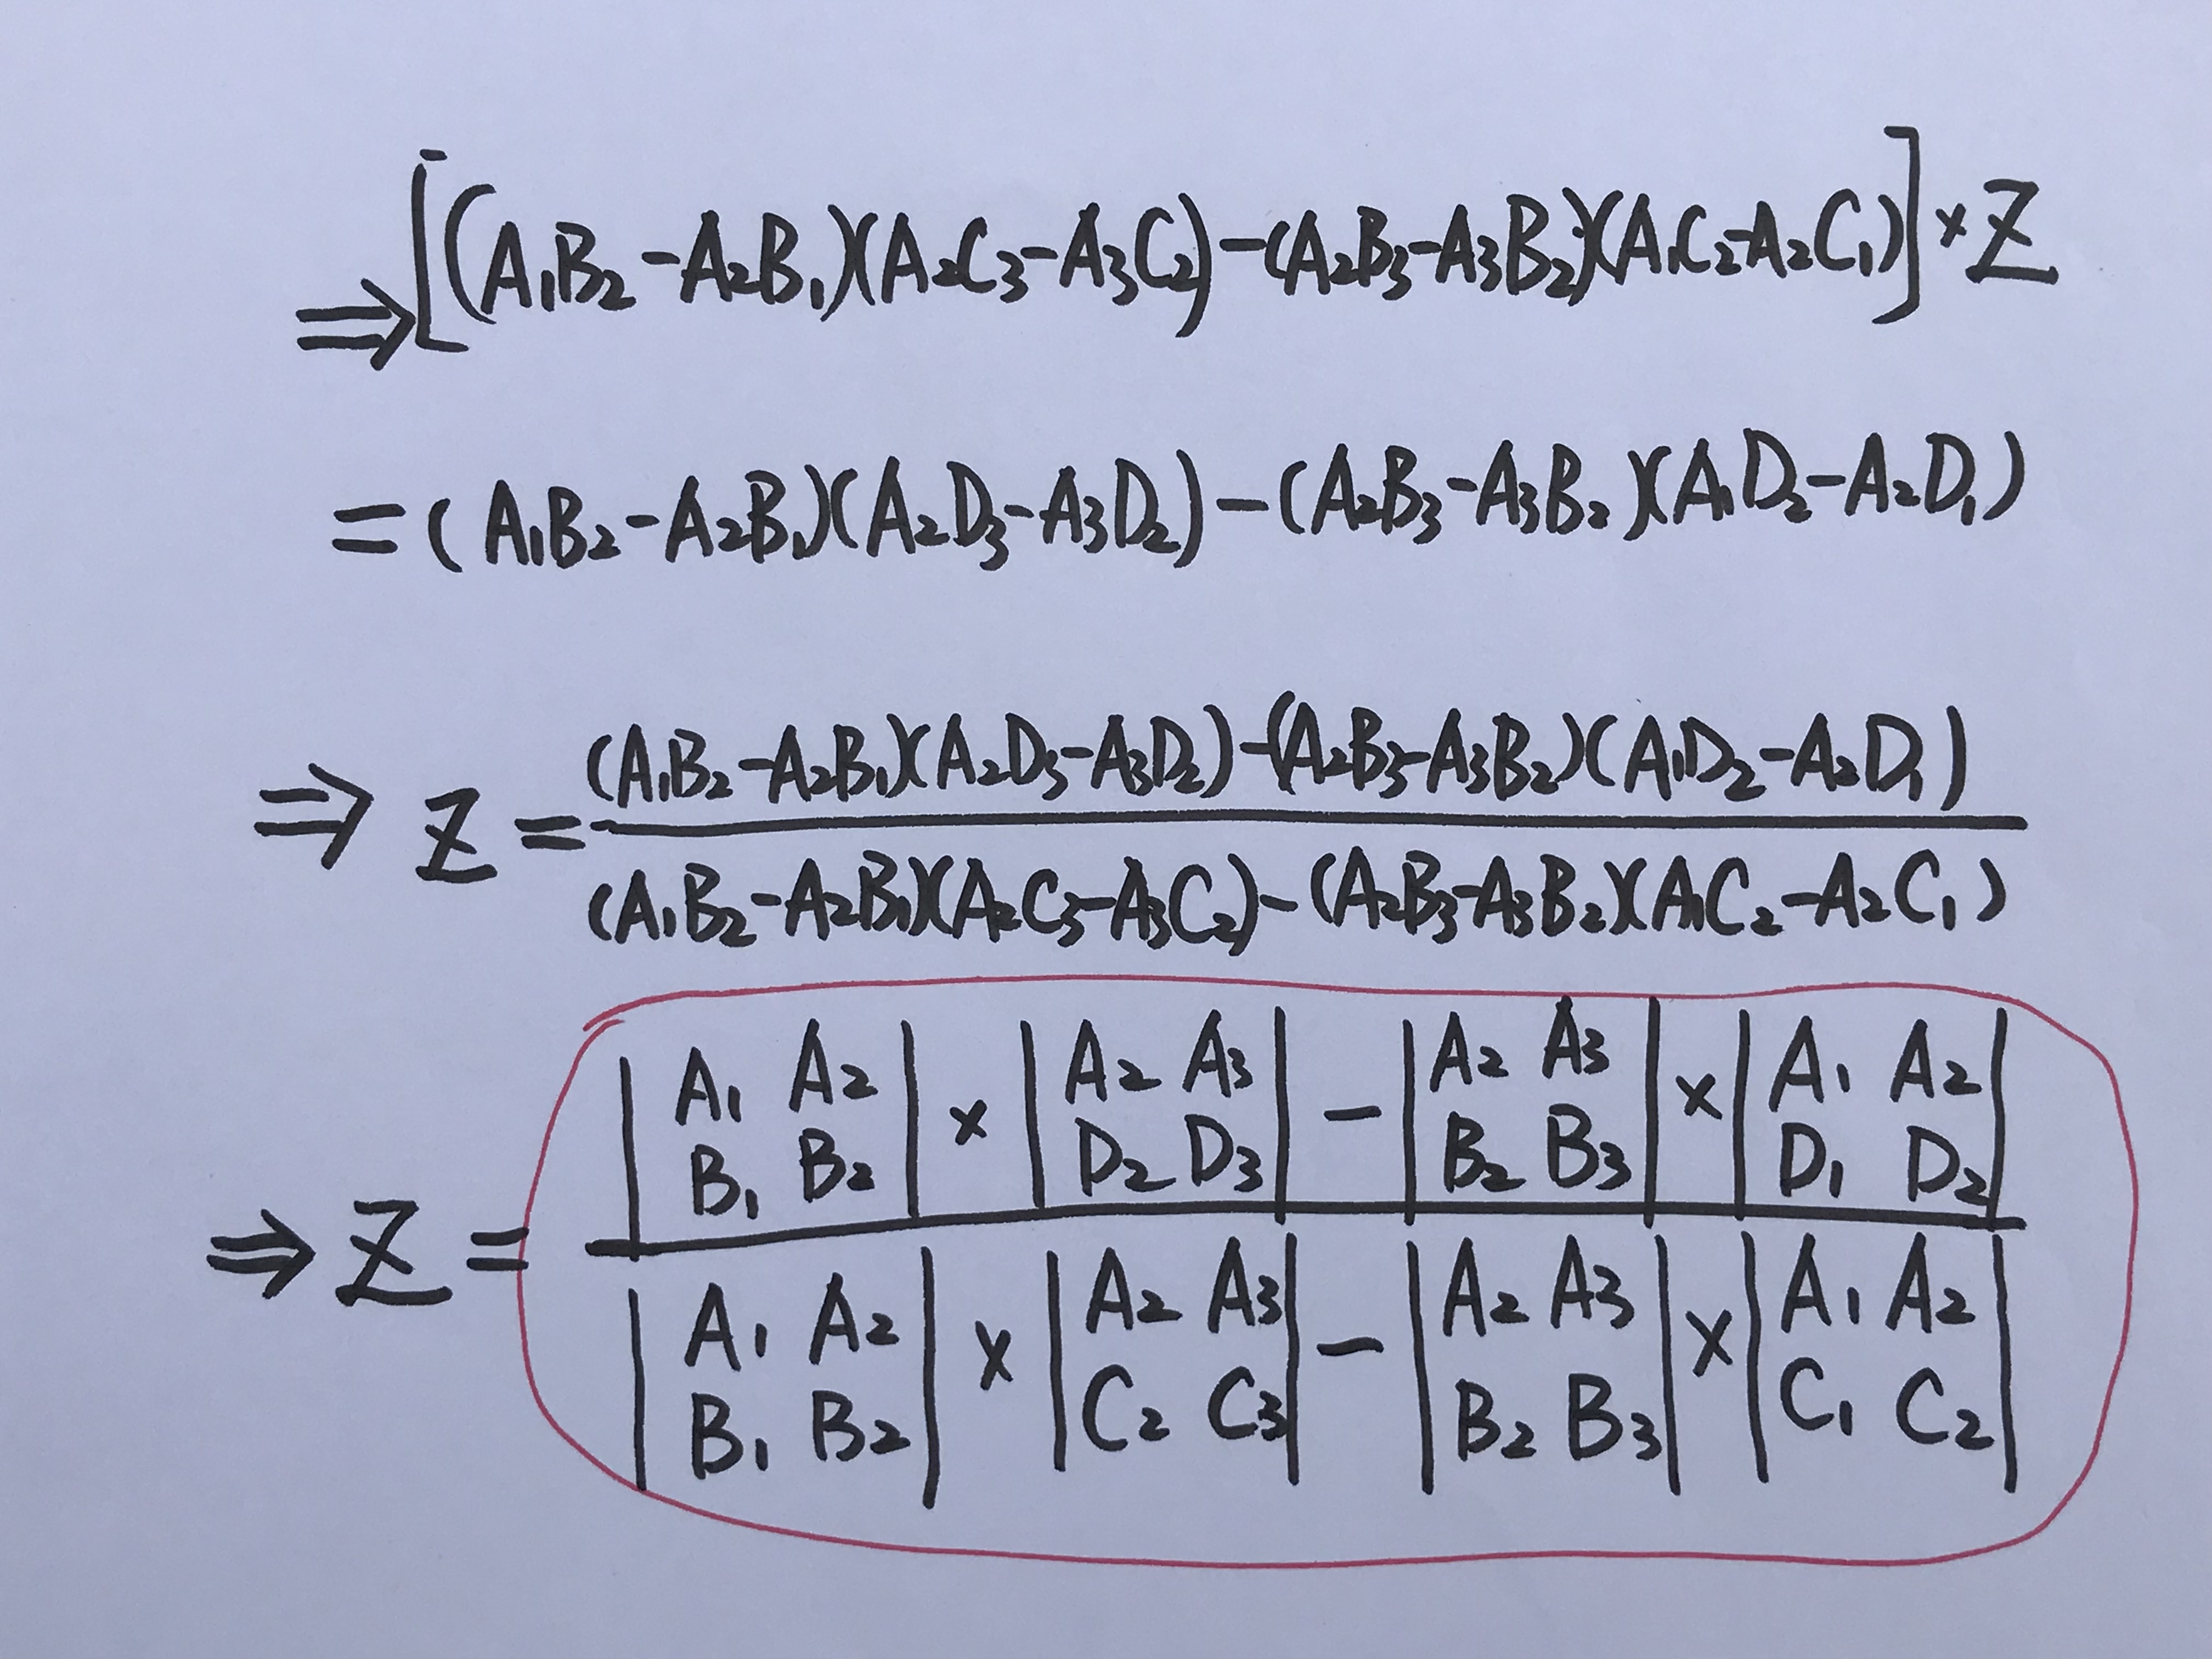 ⇒[(A₁B₂-A₂B₁)(A₂C₃-A₃C₂)-(A₂B₃-A₃B₂)(A₁C₂-A₂C₁)]×Z
=(A₁B₂-A₂B₁)(A₂D₃-A₃D₂)-(A₂B₃-A₃B₂)(A₁D₂-A₂D₁)
(A₁B₂-A₂B₁)(A₂D₃-A₃D₂)-(A₂B₃-A₃B₂)(A₁D₂-A₂D₁)
⇒ Z =
(A₁B₂-A₂B₁)(A₂C₃-A₃C₂)-(A₂B₃-A₃B₂)(A₁C₂-A₂C₁)
| A₁ A₂ | × | A₂ A₃ | - | A₂ A₃ | × | A₁ A₂ |
| B₁ B₂ | | D₂ D₃ | | B₂ B₃ | | D₁ D₂ |
⇒ Z =
| A₁ A₂ | × | A₂ A₃ | - | A₂ A₃ | × | A₁ A₂ |
| B₁ B₂ | | C₂ C₃ | | B₂ B₃ | | C₁ C₂ |